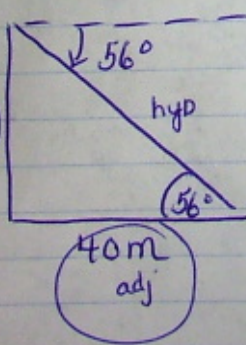 56°
hyp
56°
40m
adj